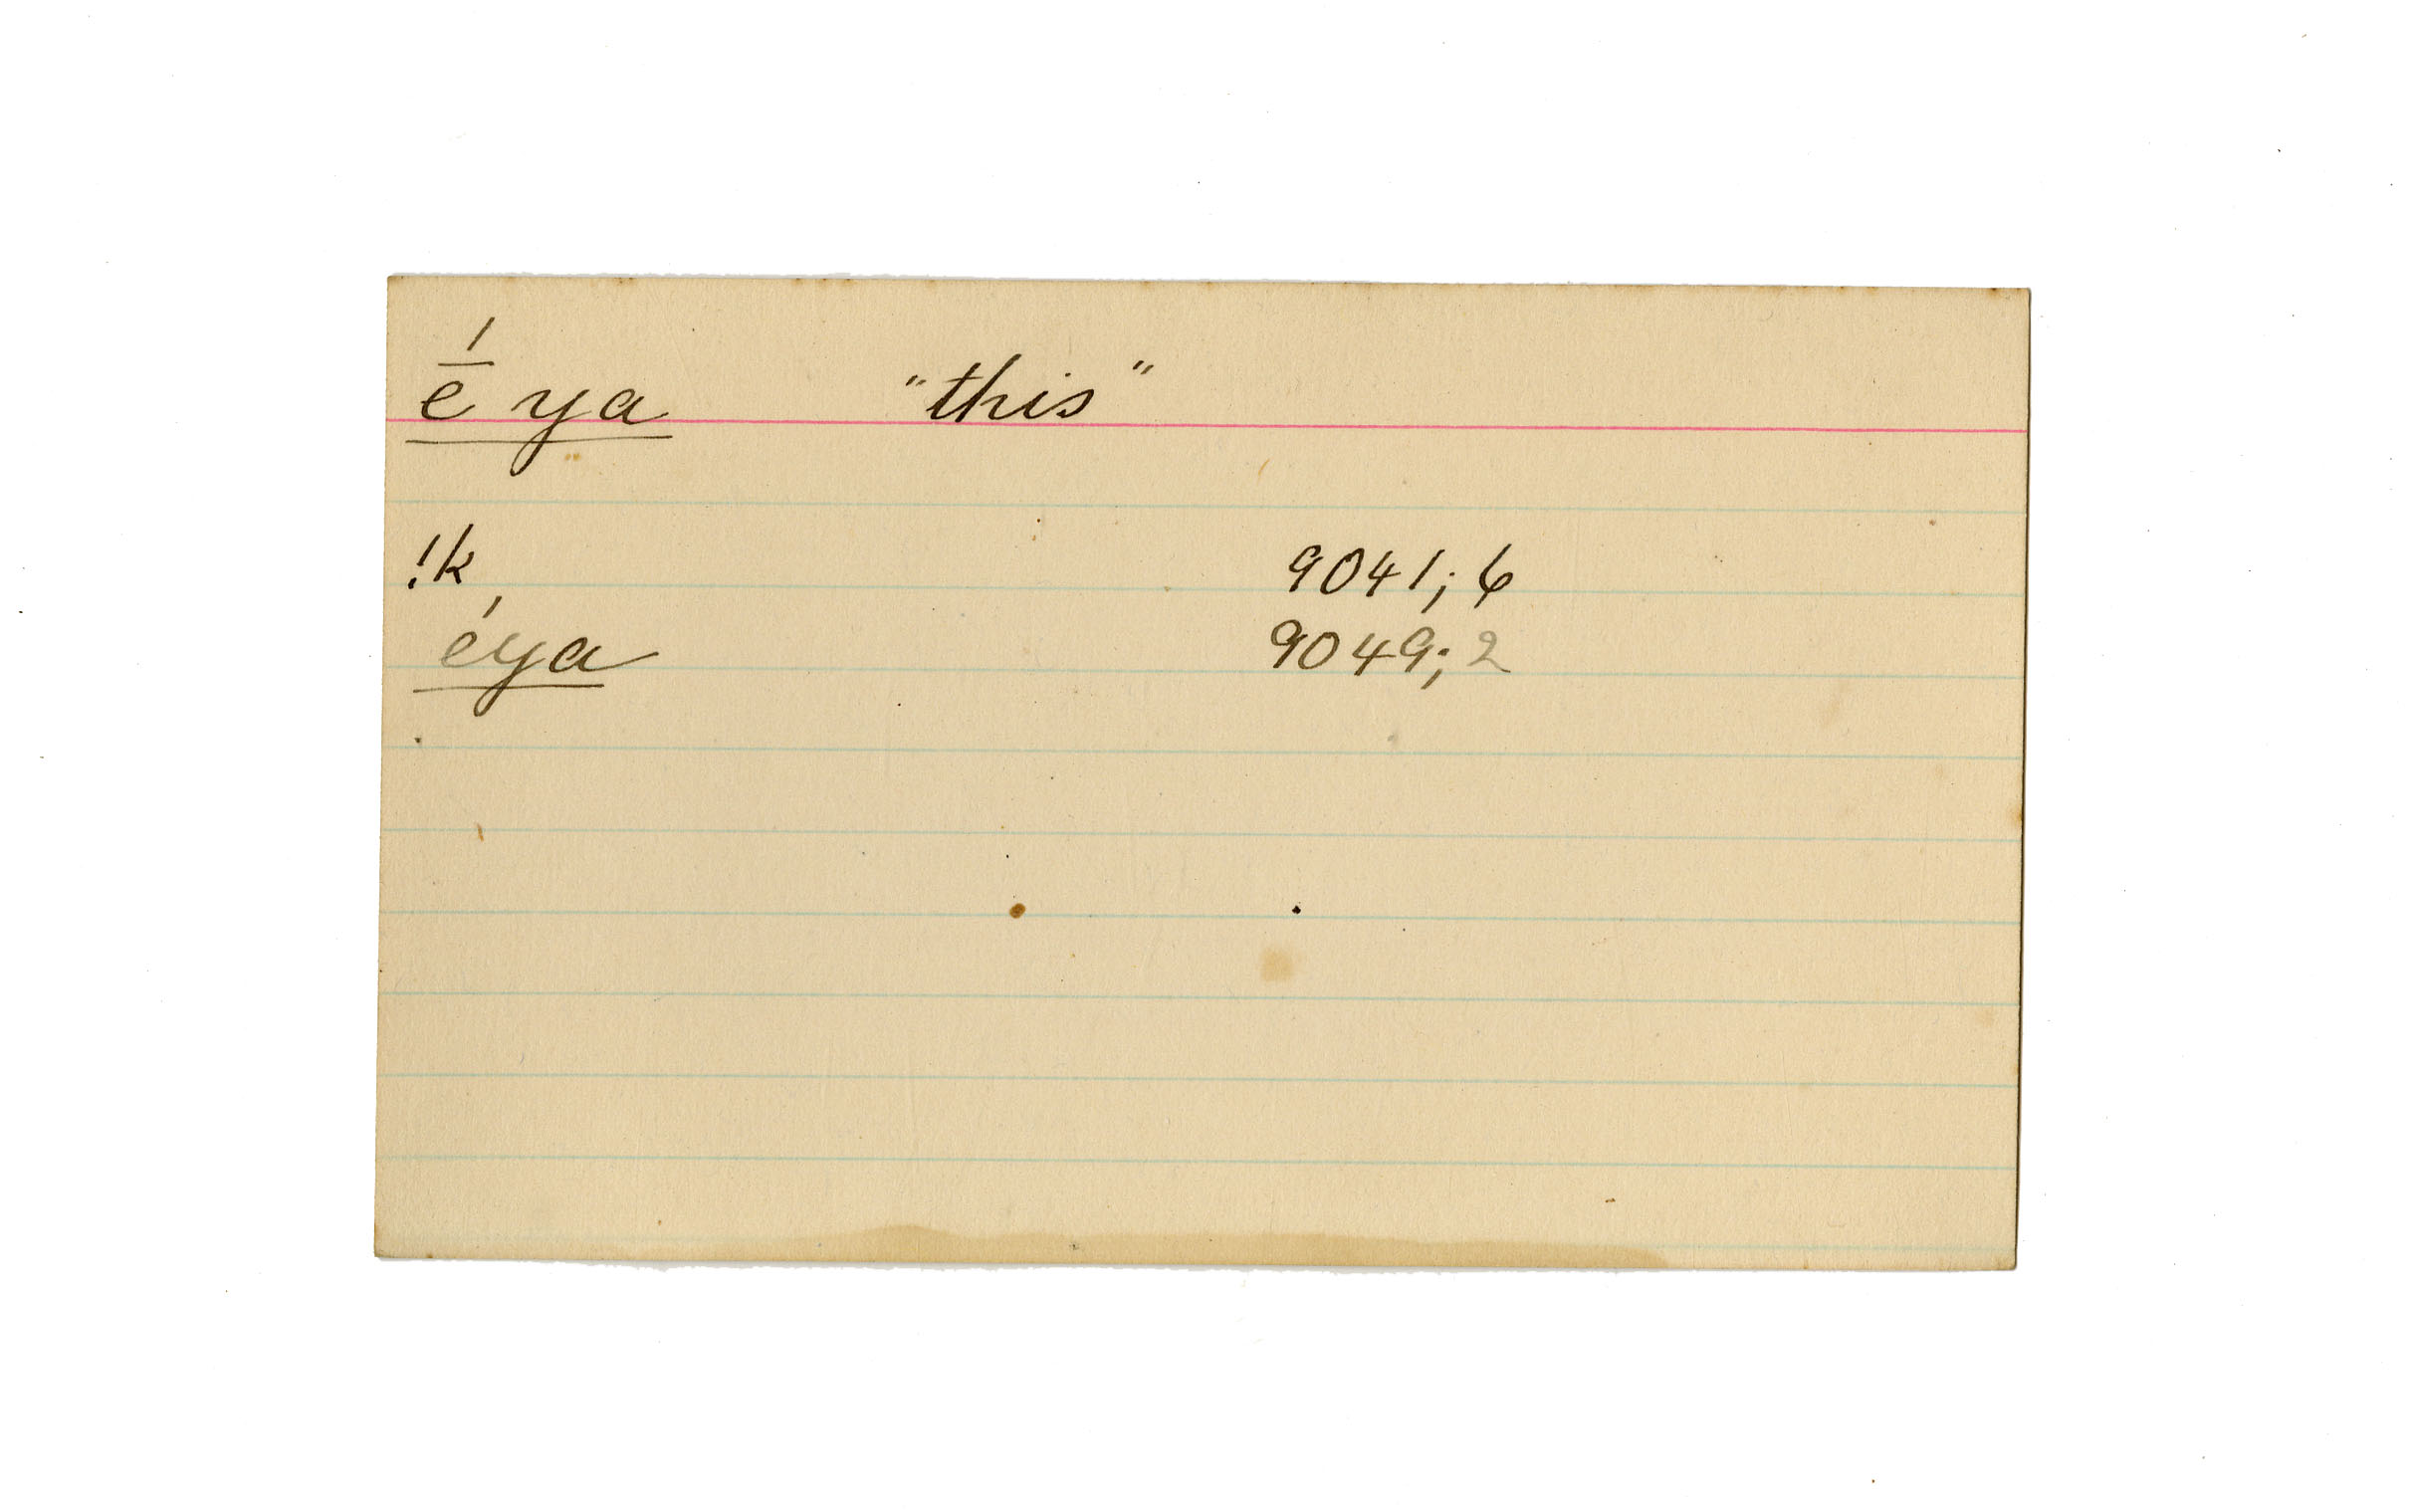 ḗ ya "this"
!k 9041; 6
éya 9049; 2